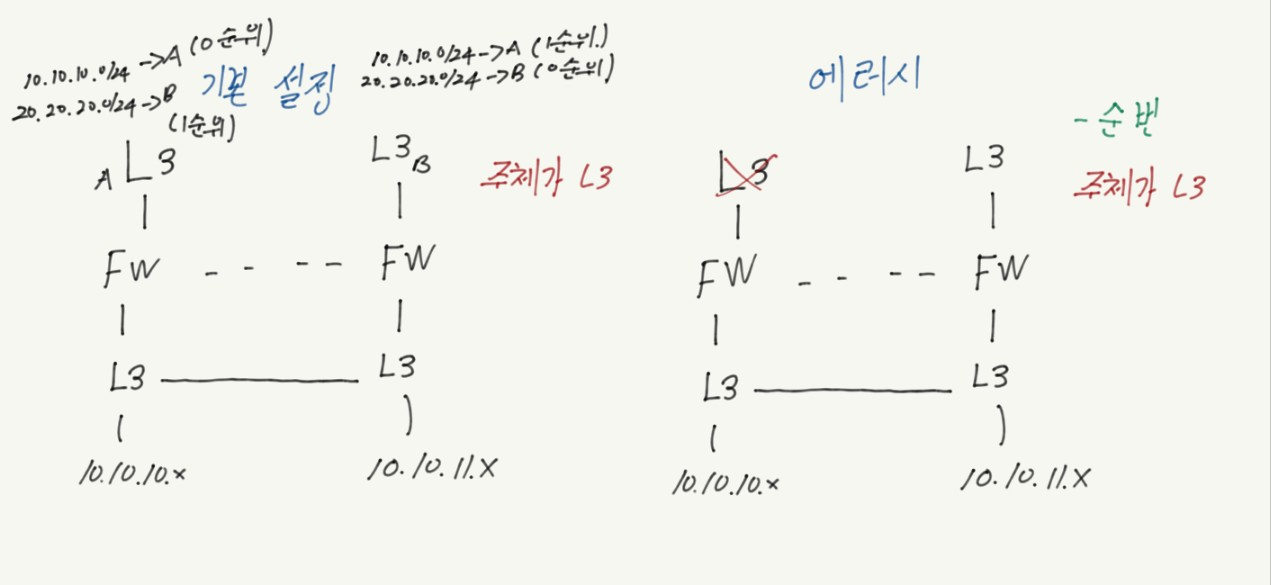 10.10.10.0/24 ->A (0순위)
20.20.20.0/24 ->B
(1순위)
기본 설정
10.10.10.0/24 ->A (1순위.)
20.20.20.0/24 ->B (0순위)
A L3
L3 B
주체가 L3
FW
FW
L3
L3
10.10.10.x
10.10.11.X
에러시
- 순번
L3
L3
주체가 L3
FW
FW
L3
L3
10.10.10.x
10.10.11.X